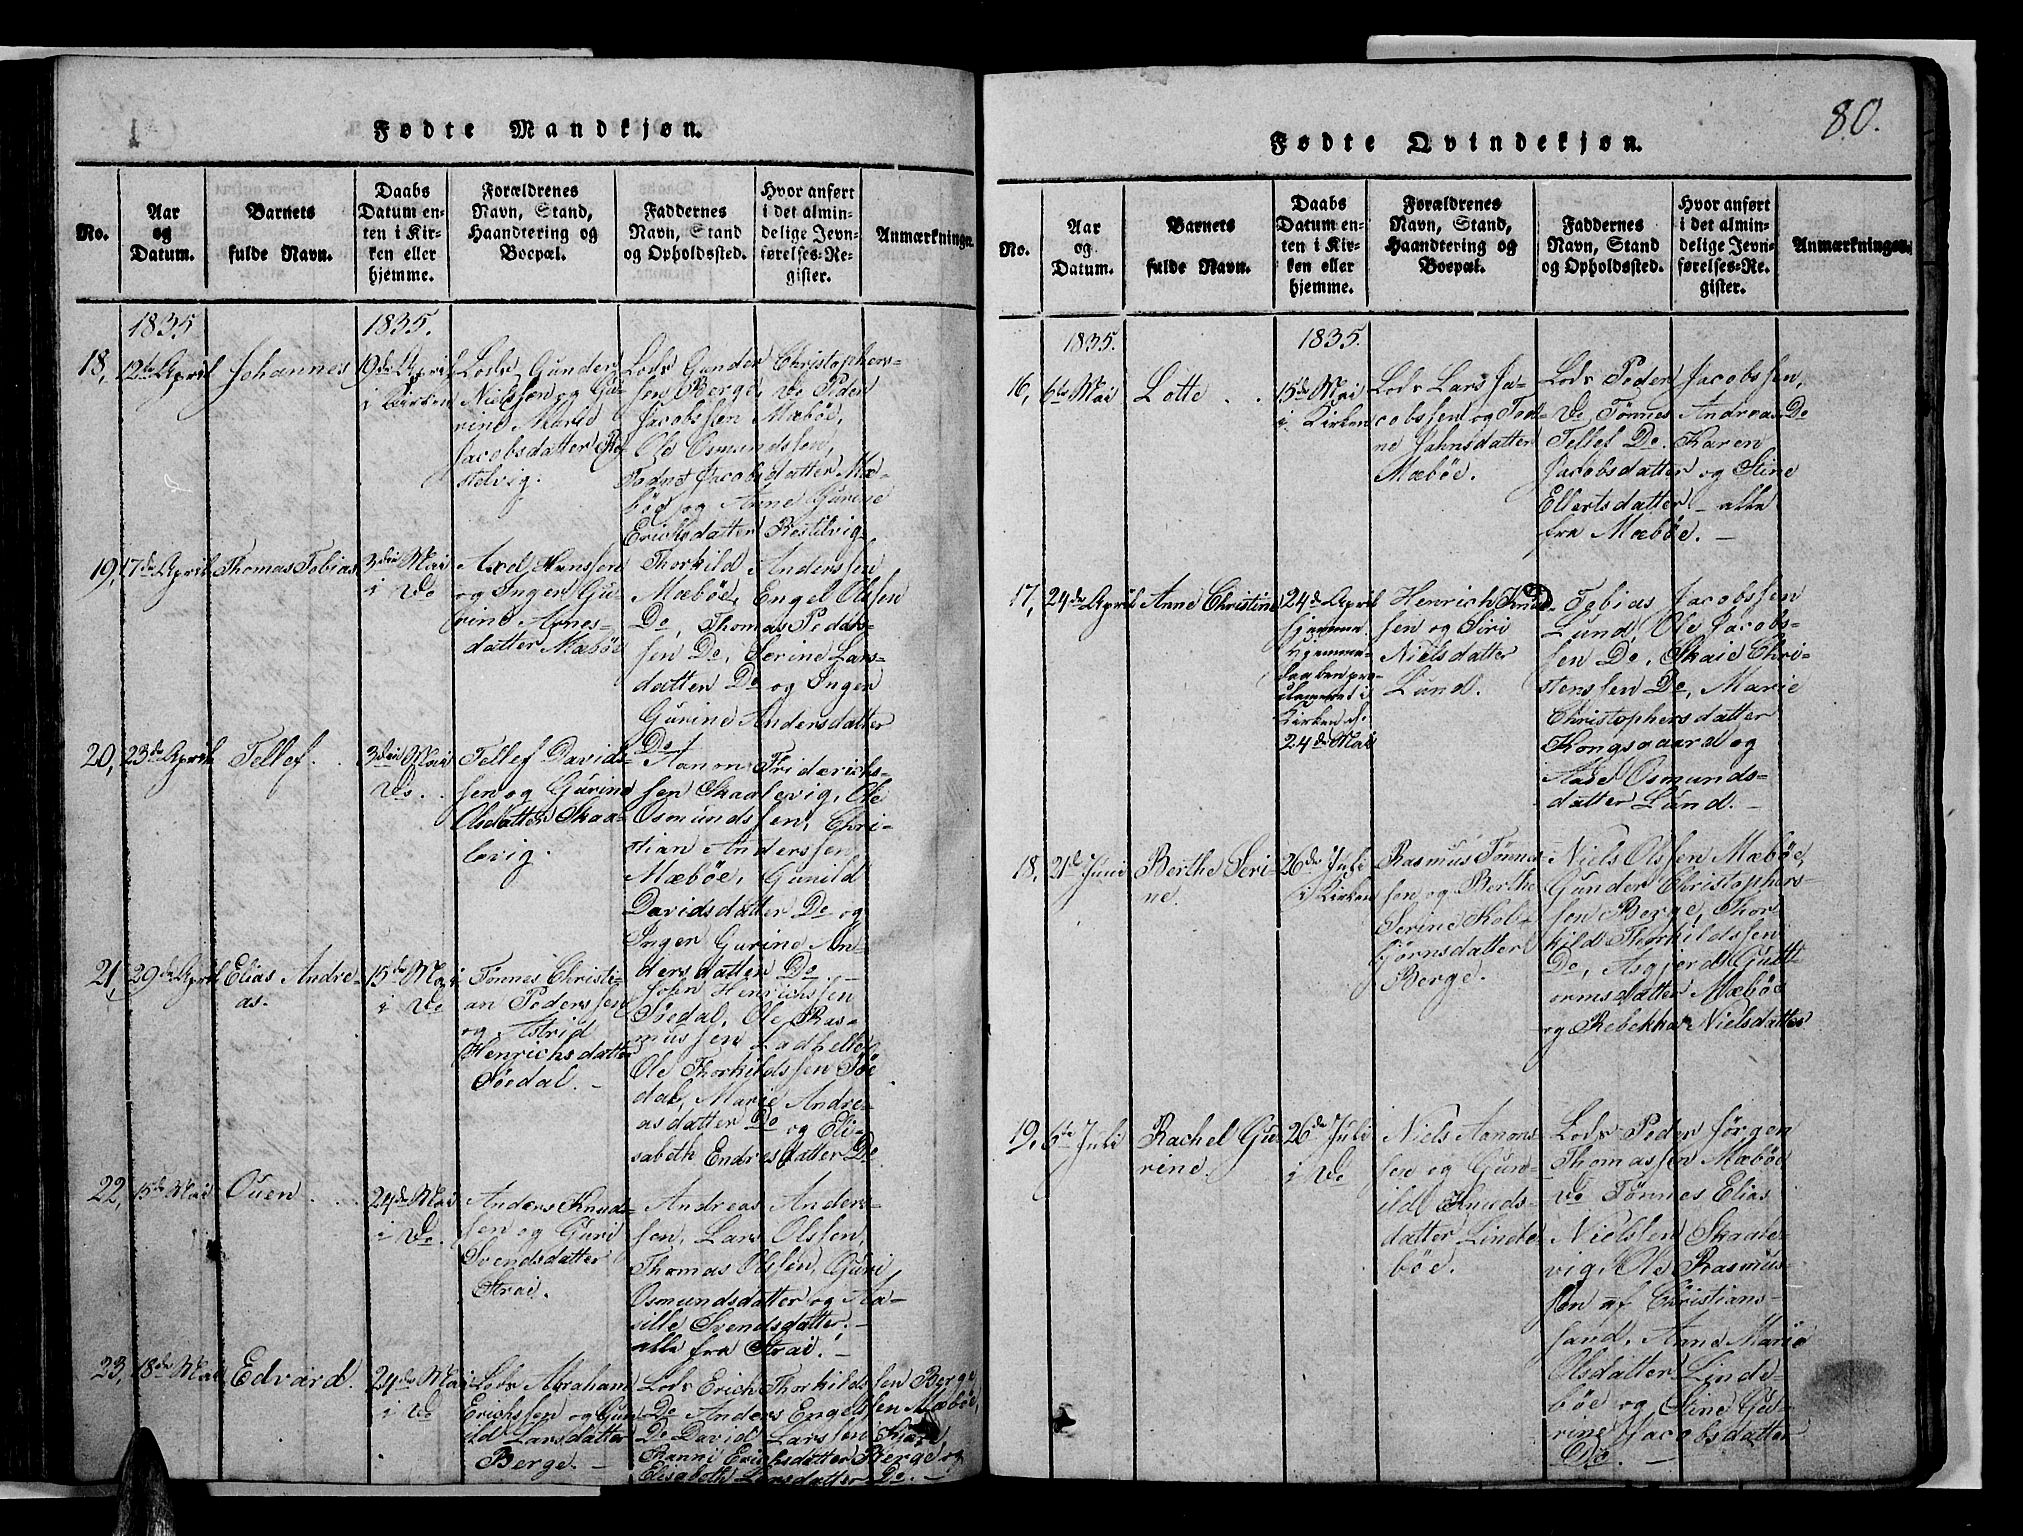 Fødte Mandkjøn.
No.
Aar
og
Datum.
Barnets
fulde Navn.
Daabs
Datum en-
ten i Kir-
ken eller
hjemme.
Forældrenes
Navn, Stand,
Haandtering og
Boepæl.
Faddernes
Navn, Stand
og Opholdssted.
Hvor anført
i det almin-
delige Jevn-
førelses-Re-
gister.
Anmærkninger.
1835
1835.
18, 12te April
Johannes
19de April
i Kirken
Lods Gunder
Nielssen og Gu-
rine Marie
Jacobsdatter Ro-
stelvig.
Lods Gunder Christophers-
sen Berge, Do Peder
Jacobssen Mæbøe,
Ole Osmundssen,
Todne Jacobsdatter Mæ-
bøe og Anne Gurine
Erichsdatter Rostelvig
19, 17de April
Thomas Tobias
3die Mai
i Do
Axel Hanssen
og Inger Gu-
rine Arnes-
datter Mæbøe
Thorkild Anderssen
Mæbøe, Engel Olssen
Do, Thomas Peders-
sen Do, Serine Lars-
datter Do og Inger
Gurine Andersdatter
Do
20, 23de April
Tellef.
3die Mai
Do.
Tellef Davids-
sen og Gurine
Olsdatter Skaa-
levig.
Aanon Friderichs-
sen Skaalevig, Ole
Osmundssen, Chri-
stian Anderssen
Mæbøe, Gunild
Davidsdatter Do og
Inger Gurine An-
dersdatter Do
21, 29de April
Elias Andre-
as.
15de Mai
i Do
Tønnes Christi-
an Pederssen
og Astrid
Henrichsdatter
Søedal.
John Henrichssen
Søedal, Ole Ras-
mussen
Ole Thorkildssen Søe
dal, Marie Andre-
asdatter Do og Eli-
sabeth Endresdatter Do
22, 15de Mai
Ouen
24de Mai
i Do.
Anders Knuds-
sen og Guri
Svendsdatter
Strai.
Andreas Anders-
sen, Lars Olssen,
Thomas Olssen, Guri
Osmundsdatter og Aa-
ville Svendsdatter,
alle fra Strai.
23, 18de Mai
Edvard.
24de Mai
i Do
Lods Abraham
Erichssen og Gun
ild Larsdatter
Berge.
Lods Erich Thorkildssen Berge
Do Anders Engelssen Mæbøe,
Do David Larssen
Ranni Erichsdatter Berge og
Elisabeth Larsdatter Do.
80.
Fødte Qvindekjøn.
No.
Aar
og
Datum.
Barnets
fulde Navn.
Daabs
Datum en-
ten i Kir-
ken eller
hjemme.
Forældrenes
Navn, Stand,
Haandtering og
Boepæl.
Faddernes
Navn, Stand
og Opholdssted.
Hvor anført
i det almin-
delige Jevn-
førelses-Re-
gister.
Anmærkninger.
1835.
1835.
16, 6te Mai
Lotte
15de Mai
i Kirken
Lods Lars Ja-
cobssen og Tod-
ne Jahnsdatter
Mæbøe.
Lods Peder Jacobssen,
Do Tønnes Andreas Do
Tellef Do. Karen
Jacobsdatter og Stine
Ellertsdatter - alle
fra Mæbøe.
17, 24de April
Anne Christine
24de April
hjemme
hjemme-
daaben pro-
clameret i
Kirken d.
24de Mai
Henrich Knud-
sen og Siri
Nielsdatter
Lund.
Tobias Jacobssen
Lund, Ole Jacobs-
sen Do, Skaie Chri-
stenssen Do, Marie
Christophersdatter
Kongsgaard og
Aase Osmunds-
datter Lund.
18, 21de Juni
Berthe Seri-
ne.
26de Juli
i Kirken
Rasmus Tønnes-
sen og Berthe
Serine Kol-
bjørnsdatter
Berge.
Niels Olssen Mæbøe,
Gunder Christophers-
sen Berge, Thor-
kild Thorkildssen
Do, Asgjerd Gutt-
ormsdatter Mæbøe
og Rebekka Nielsdatter
19, 6te Juli
Rachel Gu-
rine.
26de Juli
i Do
Niels Aanons
sen og Gun-
ild Knuds-
datter Linde-
bøe.
Lods Peder Jørgen
Thomassen Mæbøe
Do Tønnes Elias
Nielssen Skaale-
vig, Ole Rasmus-
sen af Christians-
sand, Anne Marie
Olsdatter Linde-
bøe og Stine Gu-
rine Jacobsdatter
Do.